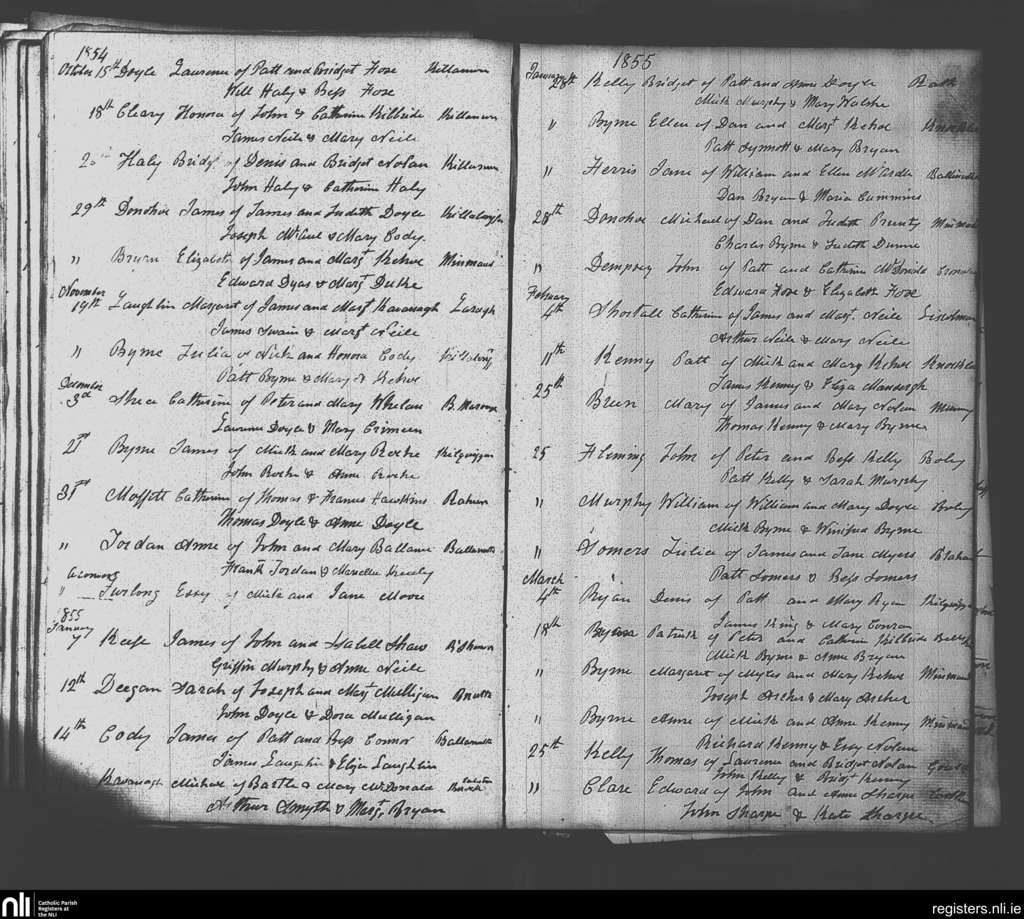 1854
October 15th Doyle Laurence of Patt and Bridget Foxe Killanure
Will Haly & Bess Foxe
18th Cleary Honora of John & Catherine Kilbride Killanure
James Neile & Mary Neile
Haly Bridgt of Denis and Bridget Nolan Killanure
John Haly & Catherine Haly
29th Donohoe James of James and Judith Doyle
Joseph & Mary Cody.
" Elizabeth of James and Margt Kehoe Minmaud
Edward Dyas & Margt Duke
November
19th Laughlin Margaret of James and Margt Kavanagh Laragh
James Swain & Margt Neile
" Byrne Julia of Nick and Honora Cody
Patt Byrne & Mary Kehoe
December
3d Shea Catherine of Peter and Mary Whelan
Laurence Doyle & Mary Crimeen
21st Byrne James of Mick and Mary Roche Kilquiggan
John Roche & Anne Roche
31st Moffett Catherine of Thomas & Frances Hawkins Rahun
Thomas Doyle & Anne Doyle
" Jordan Anne of John and Mary Ballance
Frank Jordan &
" Furlong Essy of Mick and Jane Moore
1855
January
7 Keefe James of John and Isabell Shaw
Griffin Murphy & Anne Neile
12th Deegan Sarah of Joseph and Margt Mulligan
John Doyle & Dora Mulligan
14th Cody James of Patt and Bess Connor
James Laughlin & Eliza Laughlin
Kavanagh Michael of Bartle & Mary McDonald
Arthur Smyth & Margt Bryan
1855
January
28th Kelly Bridget of Patt and Anne Doyle Rath
Mick Murphy & Mary Walshe
" Byrne Ellen of Dan and Margt Kehoe
Patt Synnott & Mary Bryan
" Ferris Jane of William and Ellen McArdle
Dan Bryan & Maria Cummins
28th Donohoe Michael of Dan and Judith Prunty
Charles Byrne & Judith Dunne
" Dempsey John of Patt and Catherine
Edward Foxe & Elizabeth Foxe
February
4th Shortall Catherine of James and Margt Neile
Arthur Neile & Mary Neile
11th Kenny Patt of Mick and Mary Kehoe
James Kenny & Eliza
25th Brien Mary of James and Mary Nolan Mummy
Thomas Kenny & Mary Byrne
25 Fleming John of Peter and Bess Kelly Boley
Patt Kelly & Sarah Murphy
" Murphy William of William and Mary Doyle Boley
Mick Byrne & Winifred Byrne
" Somers Julia of James and Jane Myers
Patt Somers & Bess Somers
March
4th Ryan Denis of Patt and Mary Ryan
James King & Mary Conran
18th Patrick of Peter and Catherine Kilbride
Mick Byrne & Anne Bryan
" Byrne Margaret of Myles and Mary Kehoe Minmaud
Joseph Archer & Mary Archer
" Byrne Anne of Mick and Anne Kenny Minmaud
Richard Kenny & Essy Nolan
25th Kelly Thomas of Laurence and Bridget Nolan
John Kelly & Bridgt Kenny
" Clare Edward of John and Anne Sharpe
John Sharpe & Kate Sharpe
nli Catholic Parish
Registers at
the NLI
registers.nli.ie